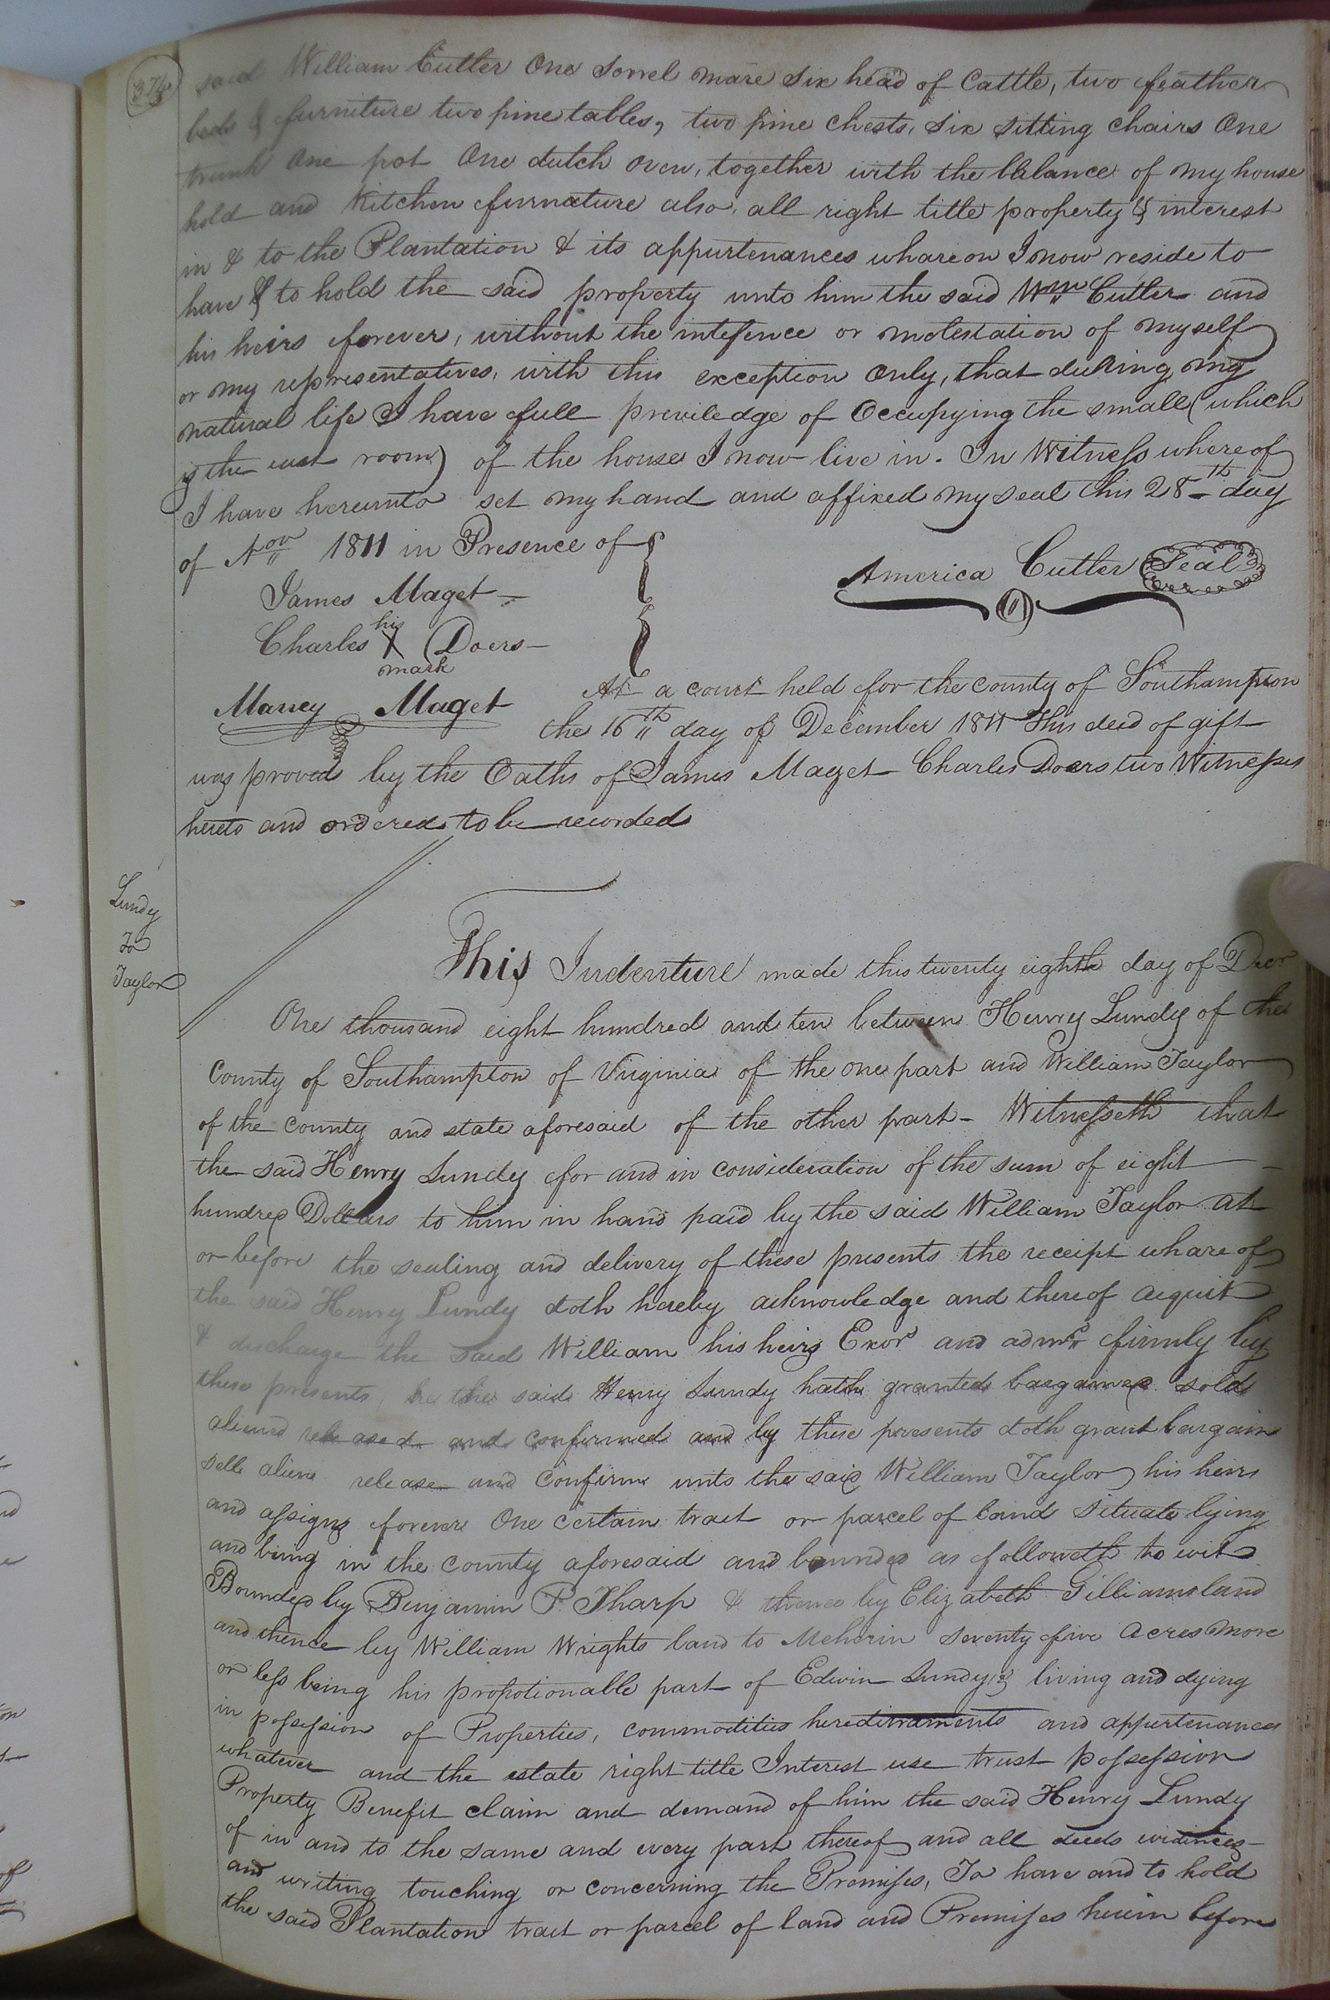 374
said William Cutler One sorrel mare six head of Cattle, two feather
beds & furniture two pine tables, two pine chests, six sitting chairs One
trunk One pot One dutch oven, together with the ballance of my house
hold and Kitchen furnature also, all right title property & interest
in & to the Plantation & its appurtenances whareon I now reside to
have & to hold the said property unto him the said Wm Cutler and
his heirs forever, without the intefence or molestation of myself
or my representatives, with this exception only, that during my
natural life I have full previledge of Occupying the small (which
is the east room) of the house I now live in. In Witness whereof
I have hereunto set my hand and affixed my seal this 28th day
of Nov 1811 in Presence of
James Maget
America Cutler Seal
Charles his X mark Doers
Maney Maget
At a court held for the county of Southampton
the 16th day of December 1811 This deed of gift
was proved by the Oaths of James Maget Charles Doers two Witnesses
hereto and ordered to be recorded
Lundy
To
Taylor
This Indenture made this twenty eighth day of Decr
One thousand eight hundred and ten between Henry Lundy of the
County of Southampton of Virginia of the one part and William Taylor
of the county and state aforesaid of the other part - Witnesseth that
the said Henry Lundy for and in consideration of the sum of eight
hundred Dollars to him in hand paid by the said William Taylor at
or before the sealing and delivery of these presents the receipt whareof
the said Henry Lundy doth hereby acknowledge and thereof acquit
& discharge the said William his heirs Exors and admrs firmly by
these presents, he the said Henry Lundy hath granted bargained sold
aliened released and confirmed and by these presents doth grant bargain
sell aliene release and confirm unto the said William Taylor his heirs
and assigns forever One certain tract or parcel of land situate lying
and being in the county aforesaid and bounded as followeth to wit
Bounded by Benjamin P. Tharp & thence by Elizabeth Gilliams land
and thence by William Wrights land to Meherin seventy five acres more
or less being his propotionable part of Edwin Lundys living and dying
in possession of Properties, commodities heredinaments and appurtenances
whatever and the estate right title Interest use trust possession
Property Benefit claim and demand of him the said Henry Lundy
of in and to the same and every part thereof and all deeds evidinces
and writing touching or concerning the Premises, To have and to hold
the said Plantation tract or parcel of land and Premises herein before